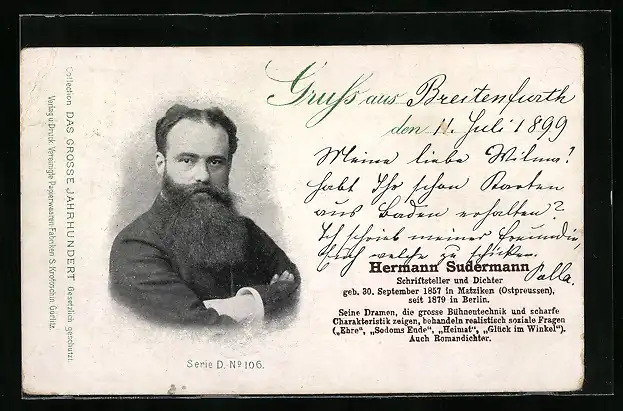 Collection DAS GROSSE JAHRHUNDERT Gesetzlich geschützt.
Verlag u. Druck: Vereinigte Papierwaaren-Fabriken S. Krotoschin, Görlitz.
Gruß aus Breitenfurth
den 11. Juli 1899
Meine liebe Wilma!
habt Ihr schon Karten
aus Baden erhalten?
Ich schrieb meiner Freundin
Euch welche zu schicken.
Hermann Sudermann
Schriftsteller und Dichter
geb. 30. September 1857 in Matziken (Ostpreussen),
seit 1879 in Berlin.
Seine Dramen, die grosse Bühnentechnik und scharfe
Charakteristik zeigen, behandeln realistisch soziale Fragen
(„Ehre“, „Sodoms Ende“, „Heimat“, „Glück im Winkel“).
Auch Romandichter.
Serie D. No 106.